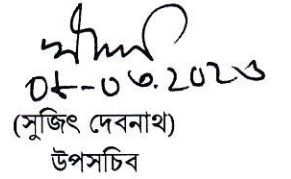 ০৮-০৩.২০২৩
(সুজিৎ দেবনাথ)
উপসচিব